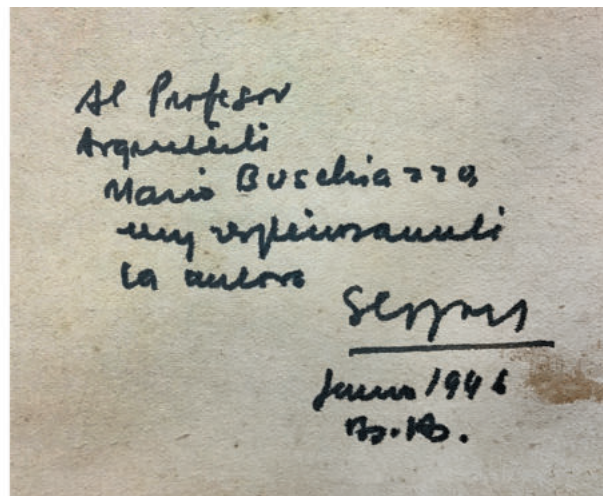 Al Profesor
Arquitecto
Mario Buschiazzo,
muy respetuosamente
la autora
Junio 1946
Bs. As.